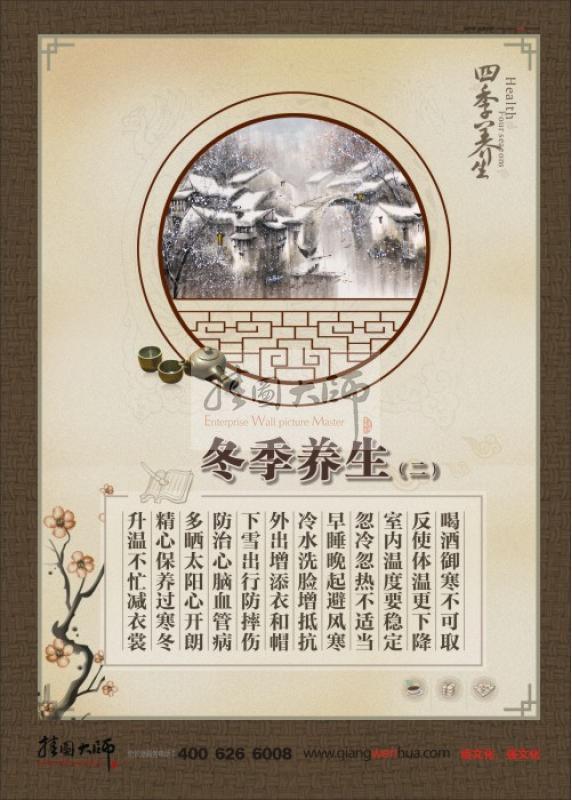 四季养生
Health
Four seasons
挂图大师
Enterprise Wall picture Master
冬季养生(二)
喝酒御寒不可取
反使体温更下降
室内温度要稳定
忽冷忽热不适当
早睡晚起避风寒
冷水洗脸增抵抗
外出增添衣和帽
下雪出行防摔伤
防治心脑血管病
多晒太阳心开朗
精心保养过寒冬
升温不忙减衣裳
挂图大师
400 626 6008
www.qiangwenhua.com